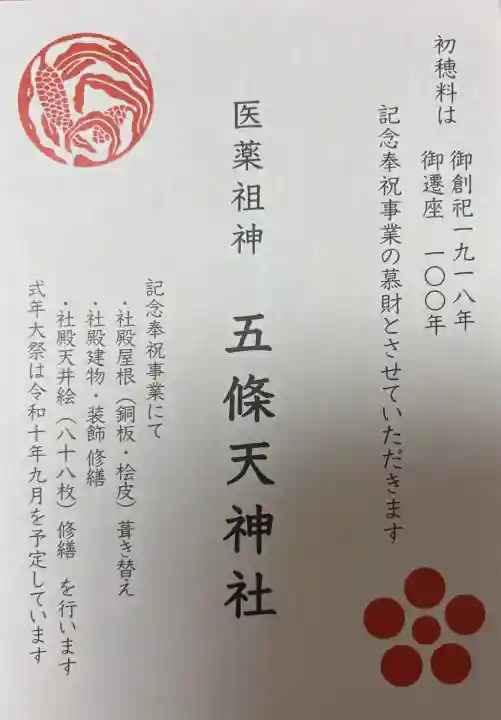 初穂料は
御創祀一九一八年
御遷座　一〇〇年
記念奉祝事業の募財とさせていただきます
医薬祖神　五條天神社
記念奉祝事業にて
・社殿屋根（銅板・桧皮）葺き替え
・社殿建物・装飾 修繕
・社殿天井絵（八十八枚）修繕　を行います
式年大祭は令和十年九月を予定しています